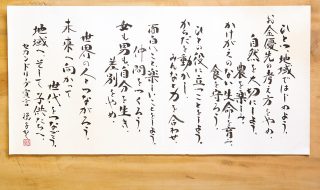 ひとつ、地域ではじめよう。
お金優先の考え方をやめ、
自然を大切にしよう。
農を楽しみ、
かけがえのない生命を育み、
食を守ろう。
ひとの役に立つことをしよう。
からだを動かし、
みんなで力を合わせ、
面白いこと、楽しいことをしよう。
仲間をつくろう。
女も男も自分を生き、
差別をやめ、
世界の人とつながろう。
世代をつなごう。
未来へ向かって
地域へそして子供たちへ。
セカンドリーグ宣言